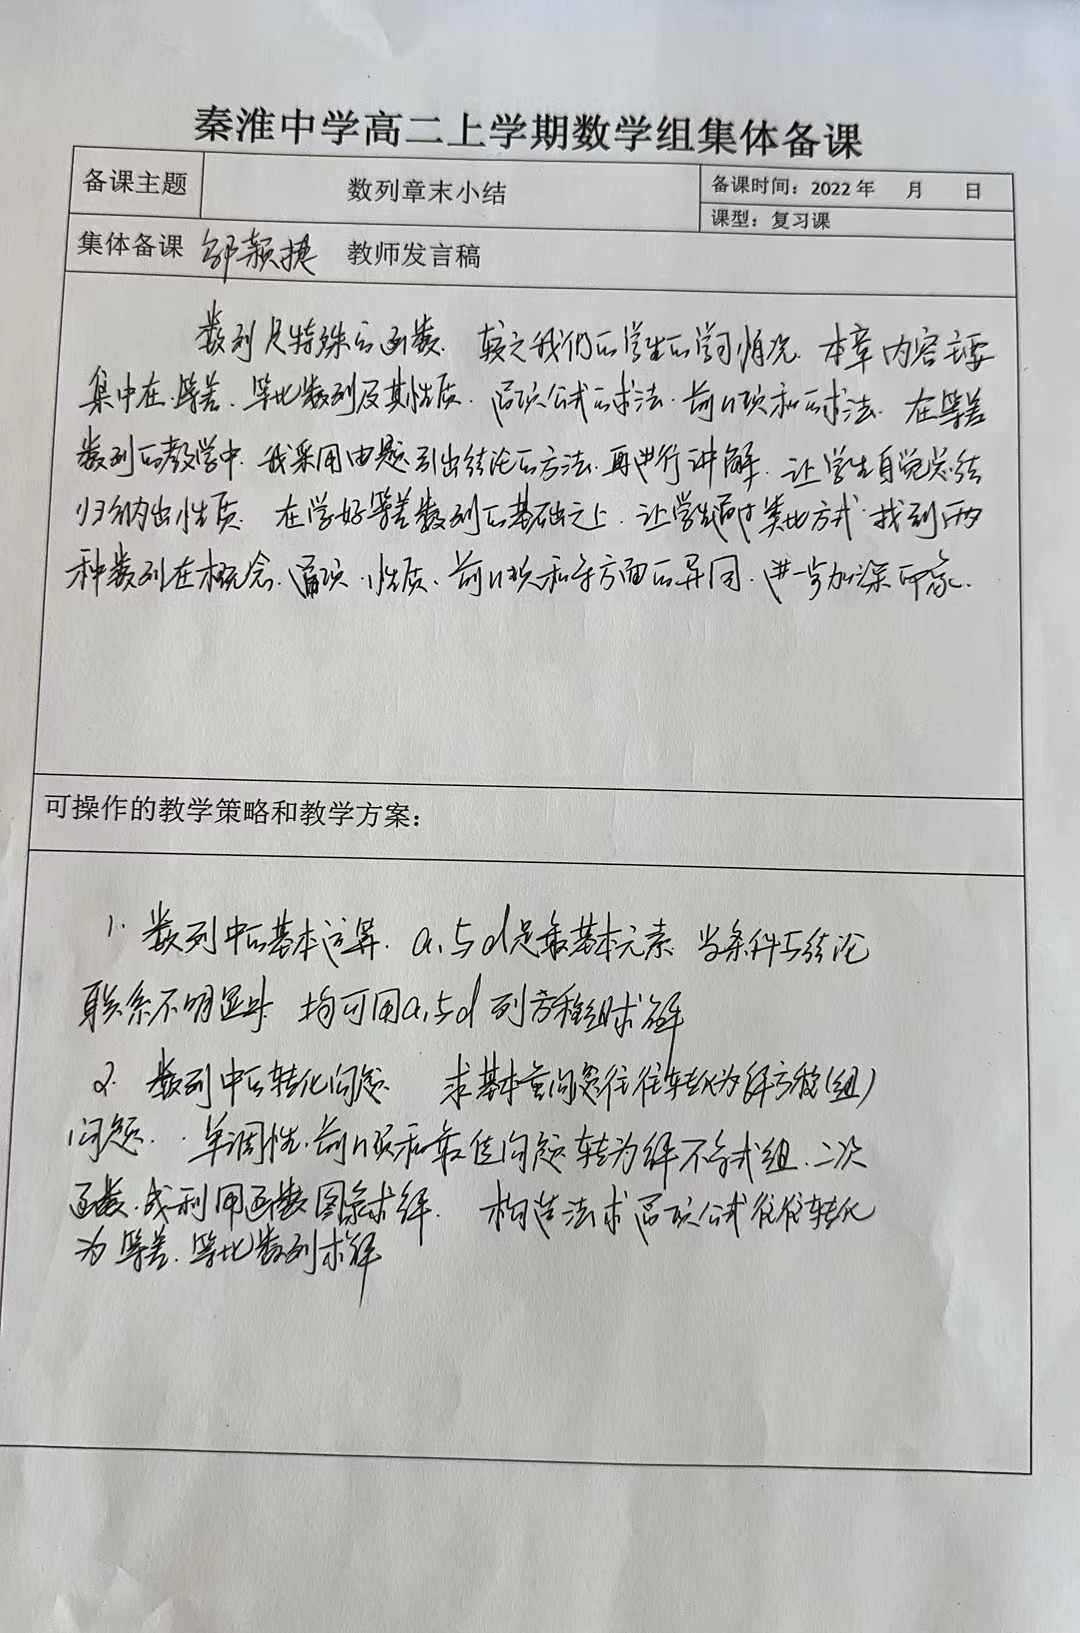 秦淮中学高二上学期数学组集体备课
备课主题 数列章末小结 备课时间：2022年 月 日
课型：复习课
集体备课 邹颖捷 教师发言稿
数列是特殊的函数. 较之我们的学生的学习情况. 本章内容主要
集中在.等差、等比数列及其性质. 通项公式的求法.前n项和的求法. 在等差
数列的教学中.我采用由题引出结论的方法.再进行讲解. 让学生自觉总结
归纳出性质. 在学好等差数列的基础之上. 让学生通过类比方式.找到两
种数列在概念、通项、性质、前n项和等方面的异同.进一步加深印象.
可操作的教学策略和教学方案：
1. 数列中的基本运算. a₁与d是最基本元素 当条件与结论
联系不明显时 均可用a₁与d列方程组求解
2. 数列中的转化问题. 求基本量问题往往转化为解方程(组)
问题. 单调性.前n项和最值问题转为解不等式组.二次
函数.或利用函数图象求解. 构造法求通项公式往往转化
为等差.等比数列求解